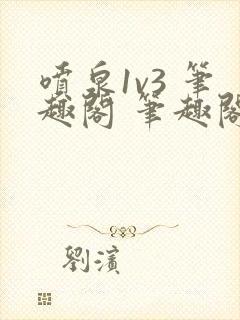 噴泉1v3 筆
趣閣 筆趣閣
劉濱